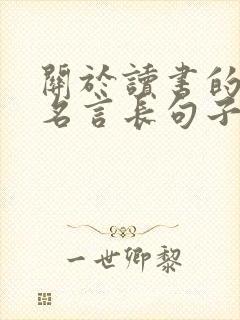 關於讀書的
名言長句子
一世卿黎